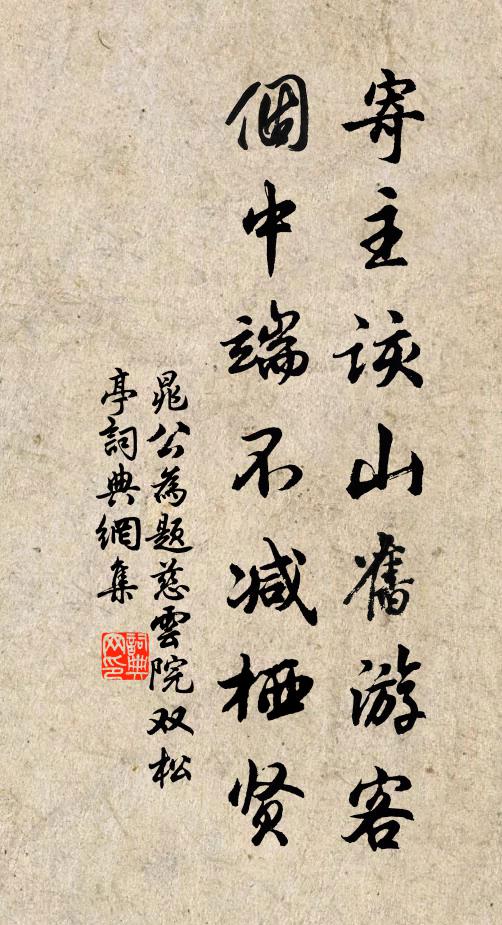 寄主该山舊游客
個中端不减栖贤
晁公為題慈雲院双松
亭詞典網集
詞典
网印